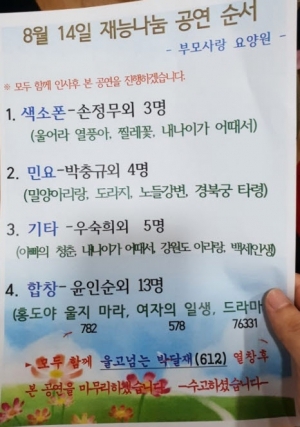 8월 14일 재능나눔 공연 순서
- 부모사랑 요양원 -
※ 모두 함께 인사후 본 공연을 진행하겠습니다.
1. 색소폰-손정무외 3명
(울어라 열풍아, 찔레꽃, 내나이가 어때서)
2. 민요-박충규외 4명
(밀양아리랑, 도라지, 노들강변, 경복궁 타령)
3. 기타-우숙희외 5명
(아빠의 청춘, 내나이가 어때서, 강원도 아리랑, 백세인생)
4. 합창-윤인순외 13명
(홍도야 울지 마라, 여자의 일생, 드라마
782 578 76331
모두 함께 울고넘는 박달재(612) 열창후
본 공연을 마무리하겠습니다. ~수고하셨습니다~